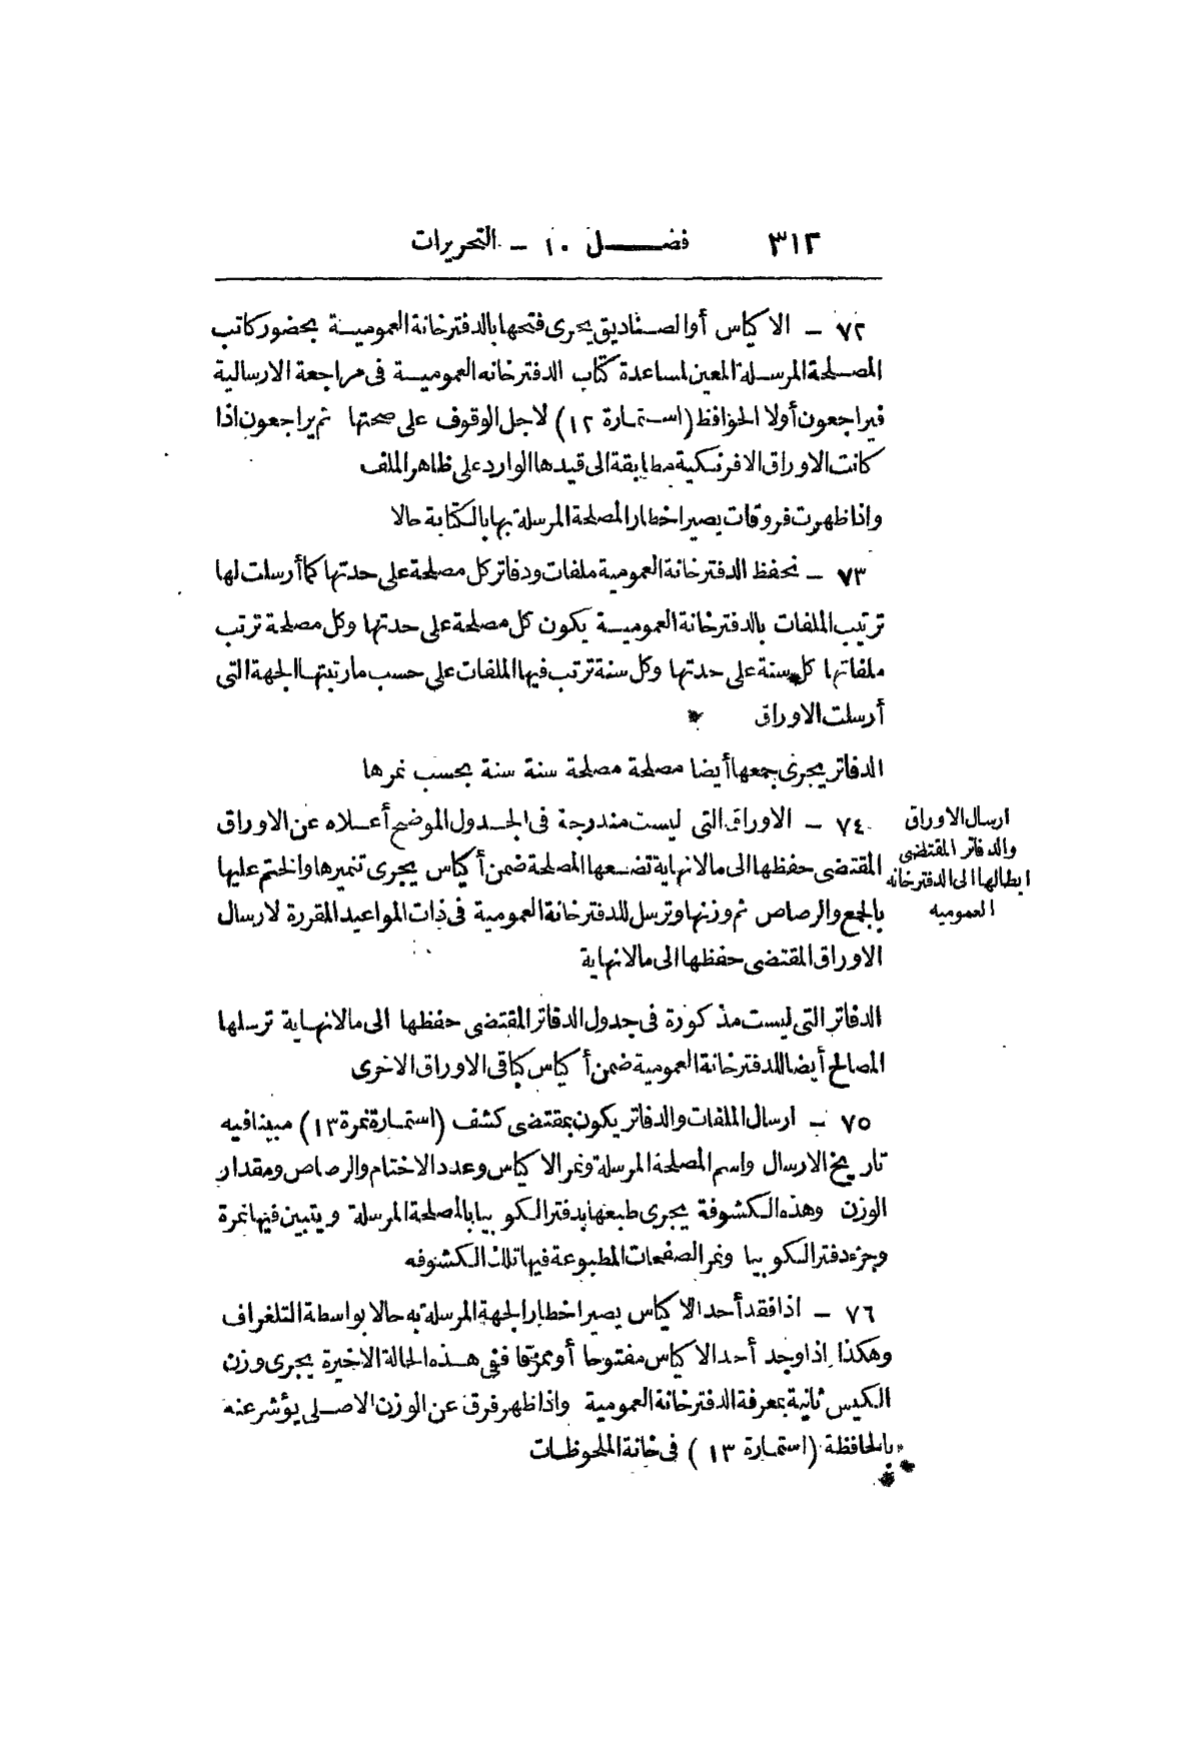 ٣١٢ فصل ١٠ – التحريرات
٧٢ – الاكياس أوالصناديق يجرى فتحها بالدفترخانة العمومية بحضور كاتب
المصلحة المرسلة المعين لمساعدة كتاب الدفترخانه العمومية فى مراجعة الارسالية
فيراجعون أولا الحوافظ (استمارة ١٢) لاجل الوقوف على صحتها ثم يراجعون اذا
كانت الاوراق الافرنكية مطابقة الى قيدها الوارد على ظاهر الملف
واذا ظهرت فروقات يصير اخطار المصلحة المرسلة بها بالكتابة حالا
٧٣ – تحفظ الدفترخانة العمومية ملفات ودفاتر كل مصلحة على حدتها كما أرسلت لها
ترتيب الملفات بالدفترخانة العمومية يكون كل مصلحة على حدتها وكل مصلحة ترتب
ملفاتها كل سنة على حدتها وكل سنة ترتب فيها الملفات على حسب ما رتبتها الجهة التى
أرسلت الاوراق
الدفاتر يجرى جمعها أيضا مصلحة مصلحة سنة سنة بحسب نمرها
ارسال الاوراق
والدفاتر المقتضى
ابطالها الى الدفترخانه
العموميه
٧٤ – الاوراق التى ليست مندرجة فى الجدول الموضح أعلاه عن الاوراق
المقتضى حفظها الى مالانهاية تضعها المصلحة ضمن أكياس يجرى تنميرها والختم عليها
بالجمع والرصاص ثم وزنها وترسل للدفترخانة العمومية فى ذات المواعيد المقررة لارسال
الاوراق المقتضى حفظها الى مالانهاية
الدفاتر التى ليست مذكورة فى جدول الدفاتر المقتضى حفظها الى مالانهاية ترسلها
المصالح أيضا للدفترخانة العمومية ضمن أكياس كباقى الاوراق الاخرى
٧٥ – ارسال الملفات والدفاتر يكون بمقتضى كشف (استمارة نمرة ١٣) مبينا فيه
تاريخ الارسال واسم المصلحة المرسلة ونمر الاكياس وعدد الاختام والرصاص ومقدار
الوزن وهذه الكشوفة يجرى طبعها بدفتر الكوبيا بالمصلحة المرسلة ويتبين فيها نمرة
وجزء دفتر الكوبيا ونمر الصفحات المطبوعة فيها تلك الكشوفه
٧٦ – اذا فقد أحد الاكياس يصير اخطار الجهة المرسلة به حالا بواسطة التلغراف
وهكذا اذا وجد أحد الاكياس مفتوحا أو ممزقا ففى هذه الحالة الاخيرة يجرى وزن
الكيس ثانية بمعرفة الدفترخانة العمومية واذا ظهر فرق عن الوزن الاصلى يؤشر عنه
بالحافظة (استمارة ١٣) فى خانة الملحوظات